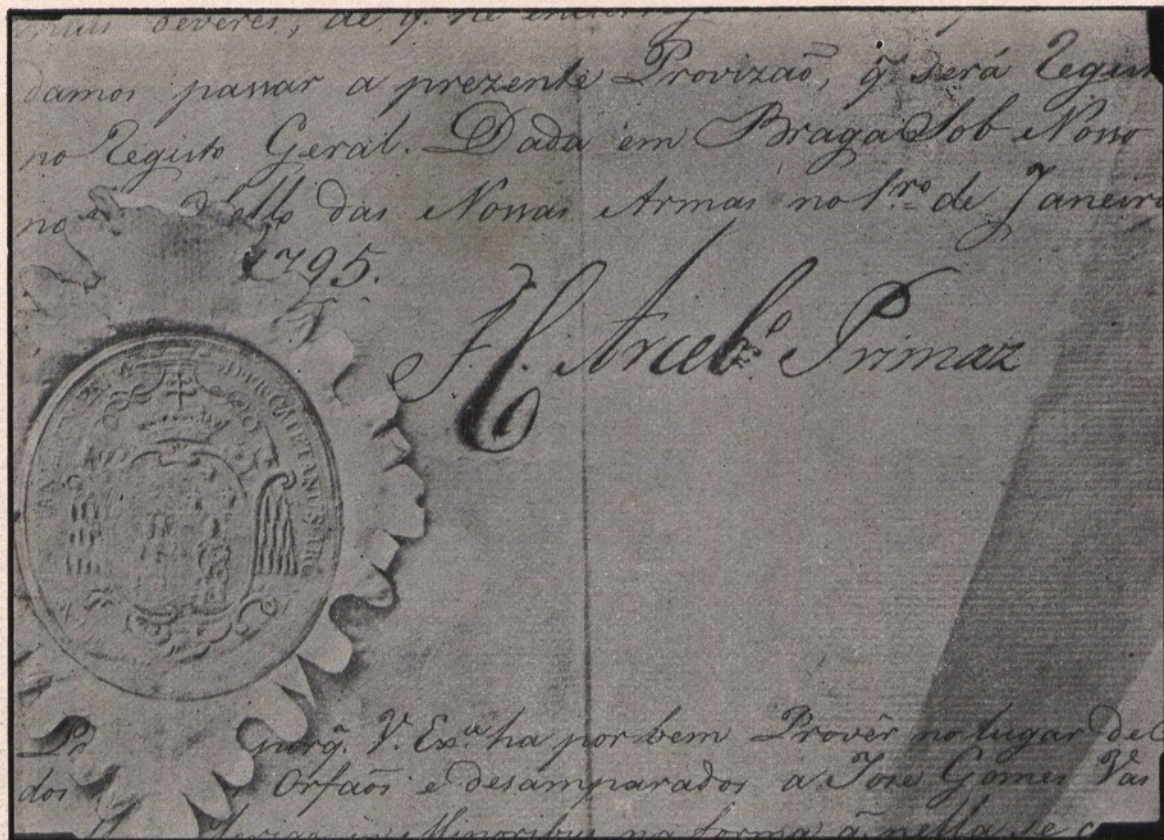 deveres, de q.
damos passar a prezente Provizaõ, q̃ será Regist
no Registo Geral. Dada em Braga Sob Nosso
no Sello das Nossas Armas no 1.ro de Janeiro
1795.
F. C. Arceb.o Primaz
CAIETANUS
porq̃. V. Ex.a ha por bem Provêr no lugar de
dos Orfaõs e desamparados a Joze Gomes Vas
Minoribus na forma q̃ nella se